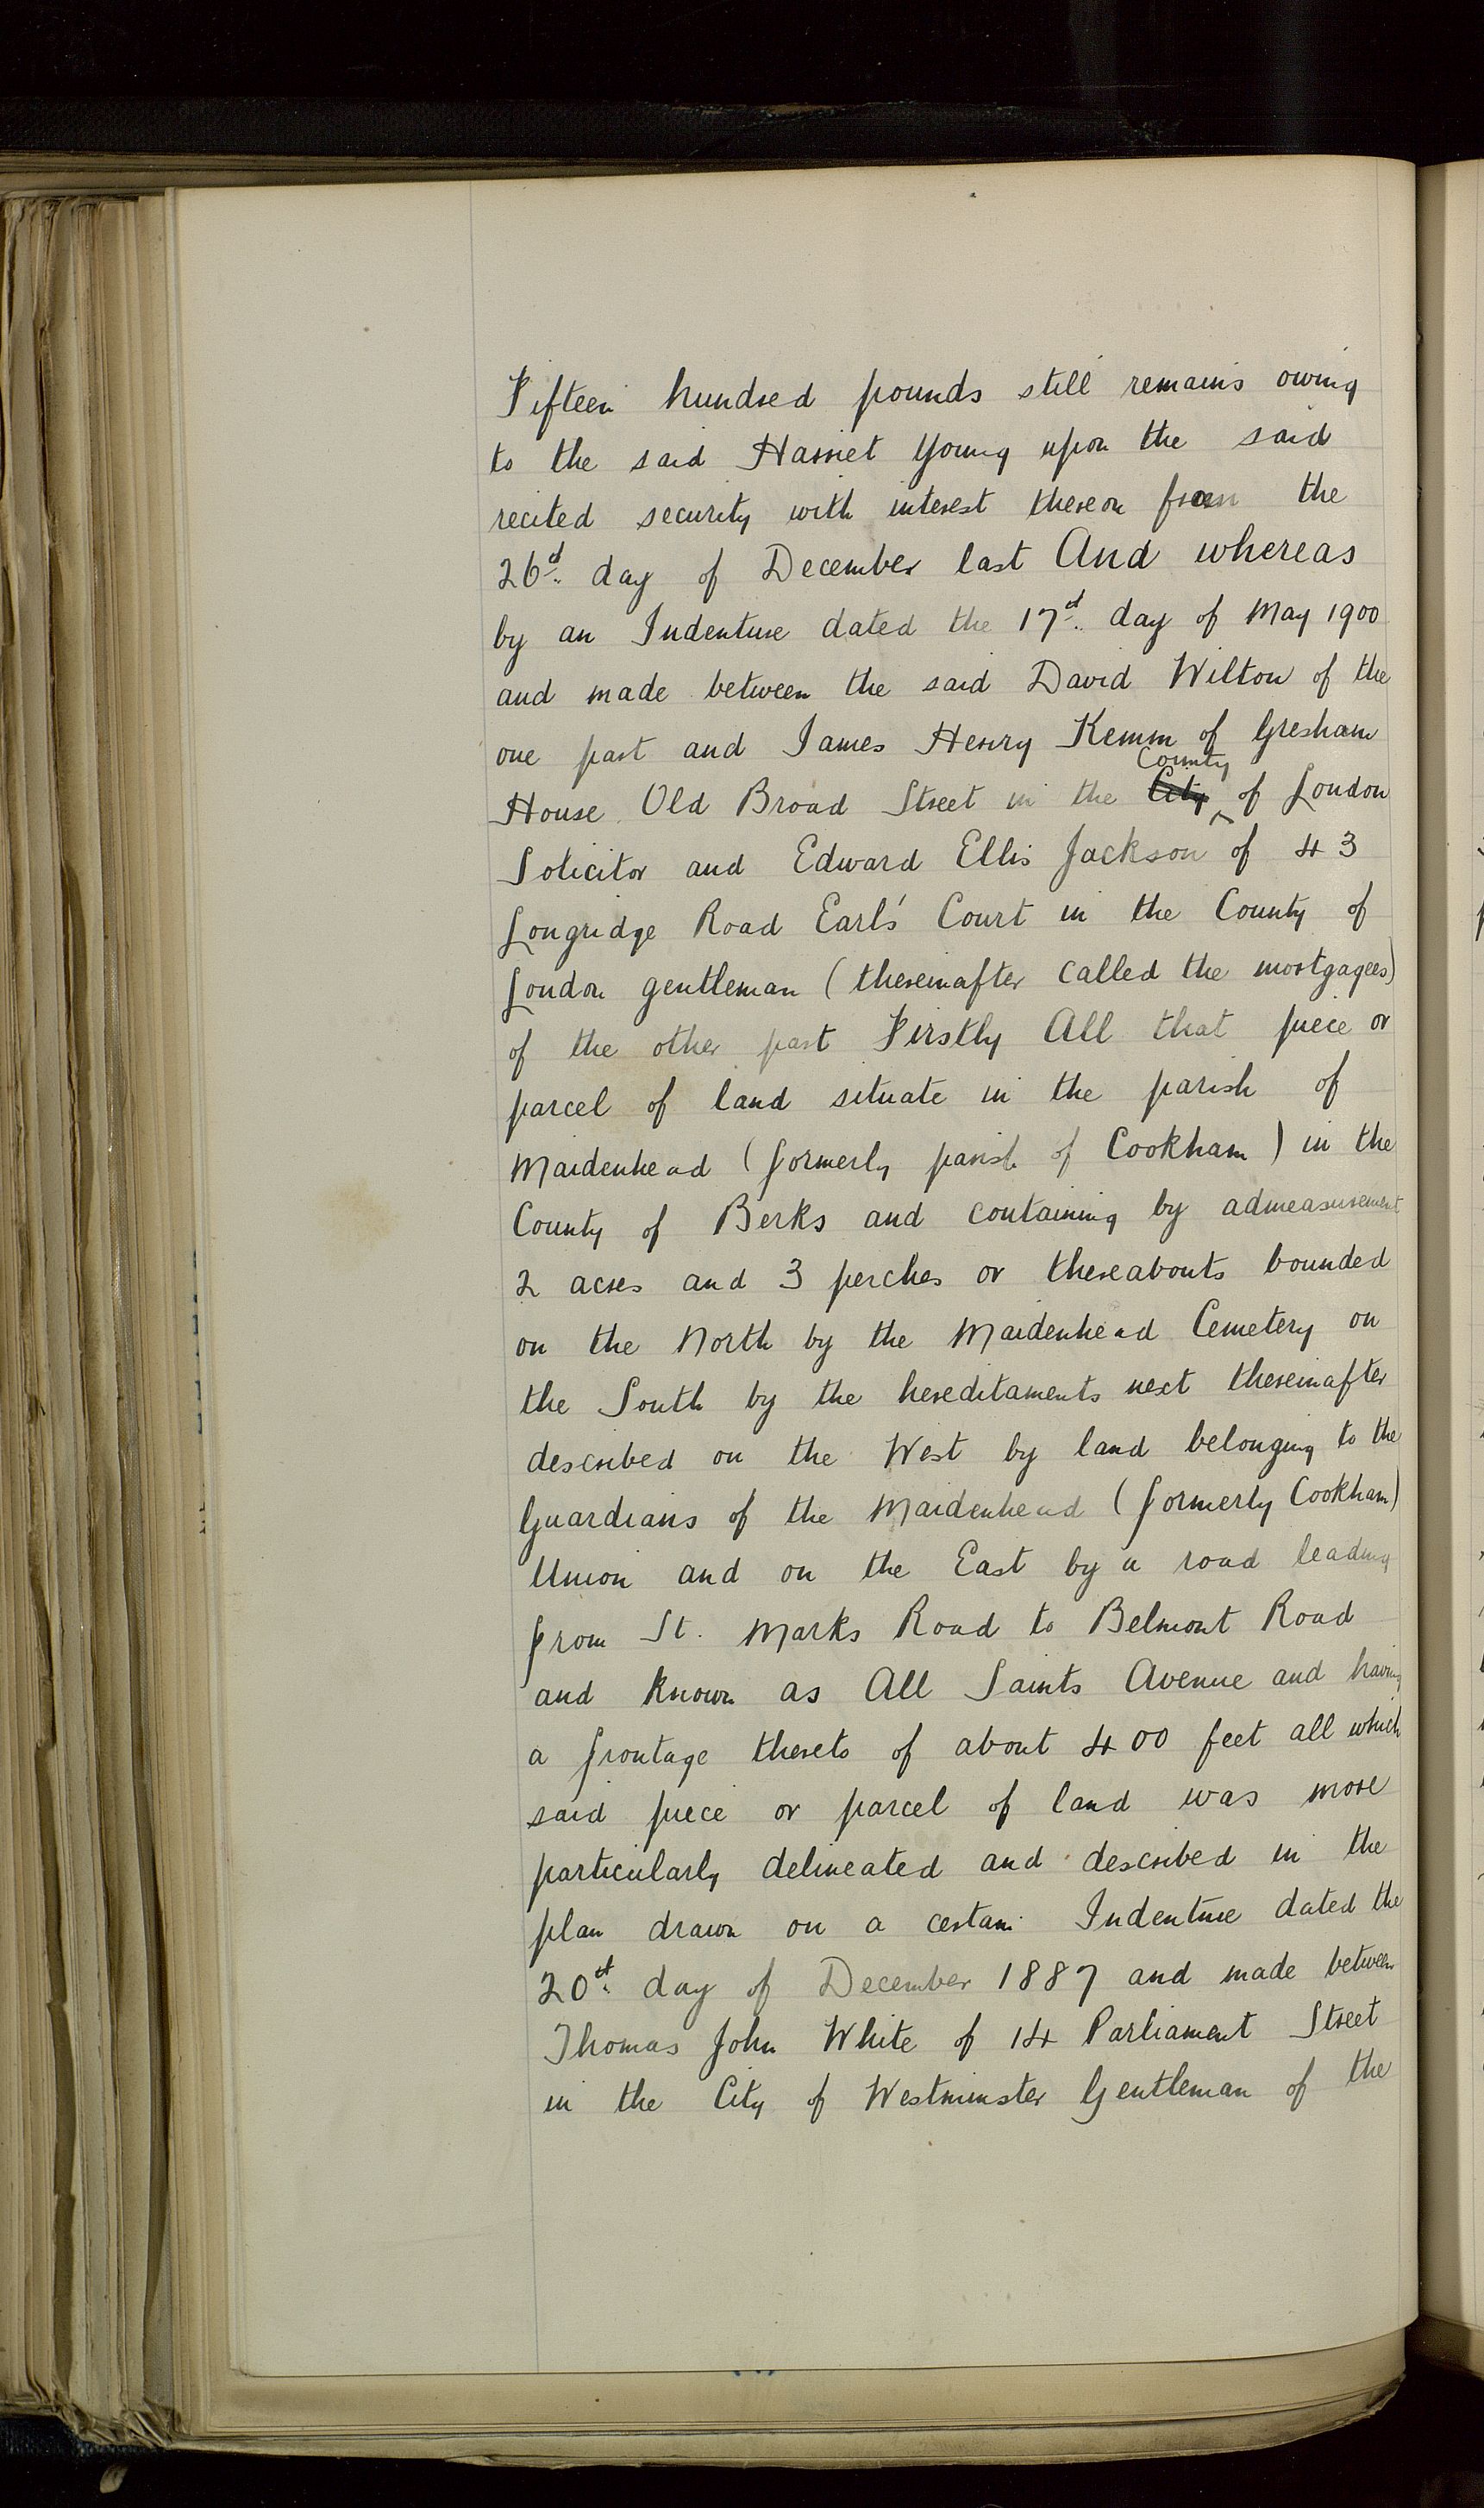 Fifteen hundred pounds still remains owing
to the said Harriet Young upon the said
recited security with interest thereon from the
26th day of December last And whereas
by an Indenture dated the 17th day of May 1900
and made between the said David Wilton of the
one part and James Henry Kemm of Gresham
House Old Broad Street in the City County of London
Solicitor and Edward Ellis Jackson of 43
Longridge Road Earl's Court in the County of
London gentleman (thereinafter called the mortgagees)
of the other part Firstly All that piece or
parcel of land situate in the parish of
Maidenhead (formerly parish of Cookham) in the
County of Berks and containing by admeasurement
2 acres and 3 perches or thereabouts bounded
on the North by the Maidenhead Cemetery on
the South by the hereditaments next thereinafter
described on the West by land belonging to the
Guardians of the Maidenhead (formerly Cookham)
Union and on the East by a road leading
from St. Marks Road to Belmont Road
and known as All Saints Avenue and having
a frontage thereto of about 400 feet all which
said piece or parcel of land was more
particularly delineated and described in the
plan drawn on a certain Indenture dated the
20th day of December 1887 and made between
Thomas John White of 14 Parliament Street
in the City of Westminster Gentleman of the